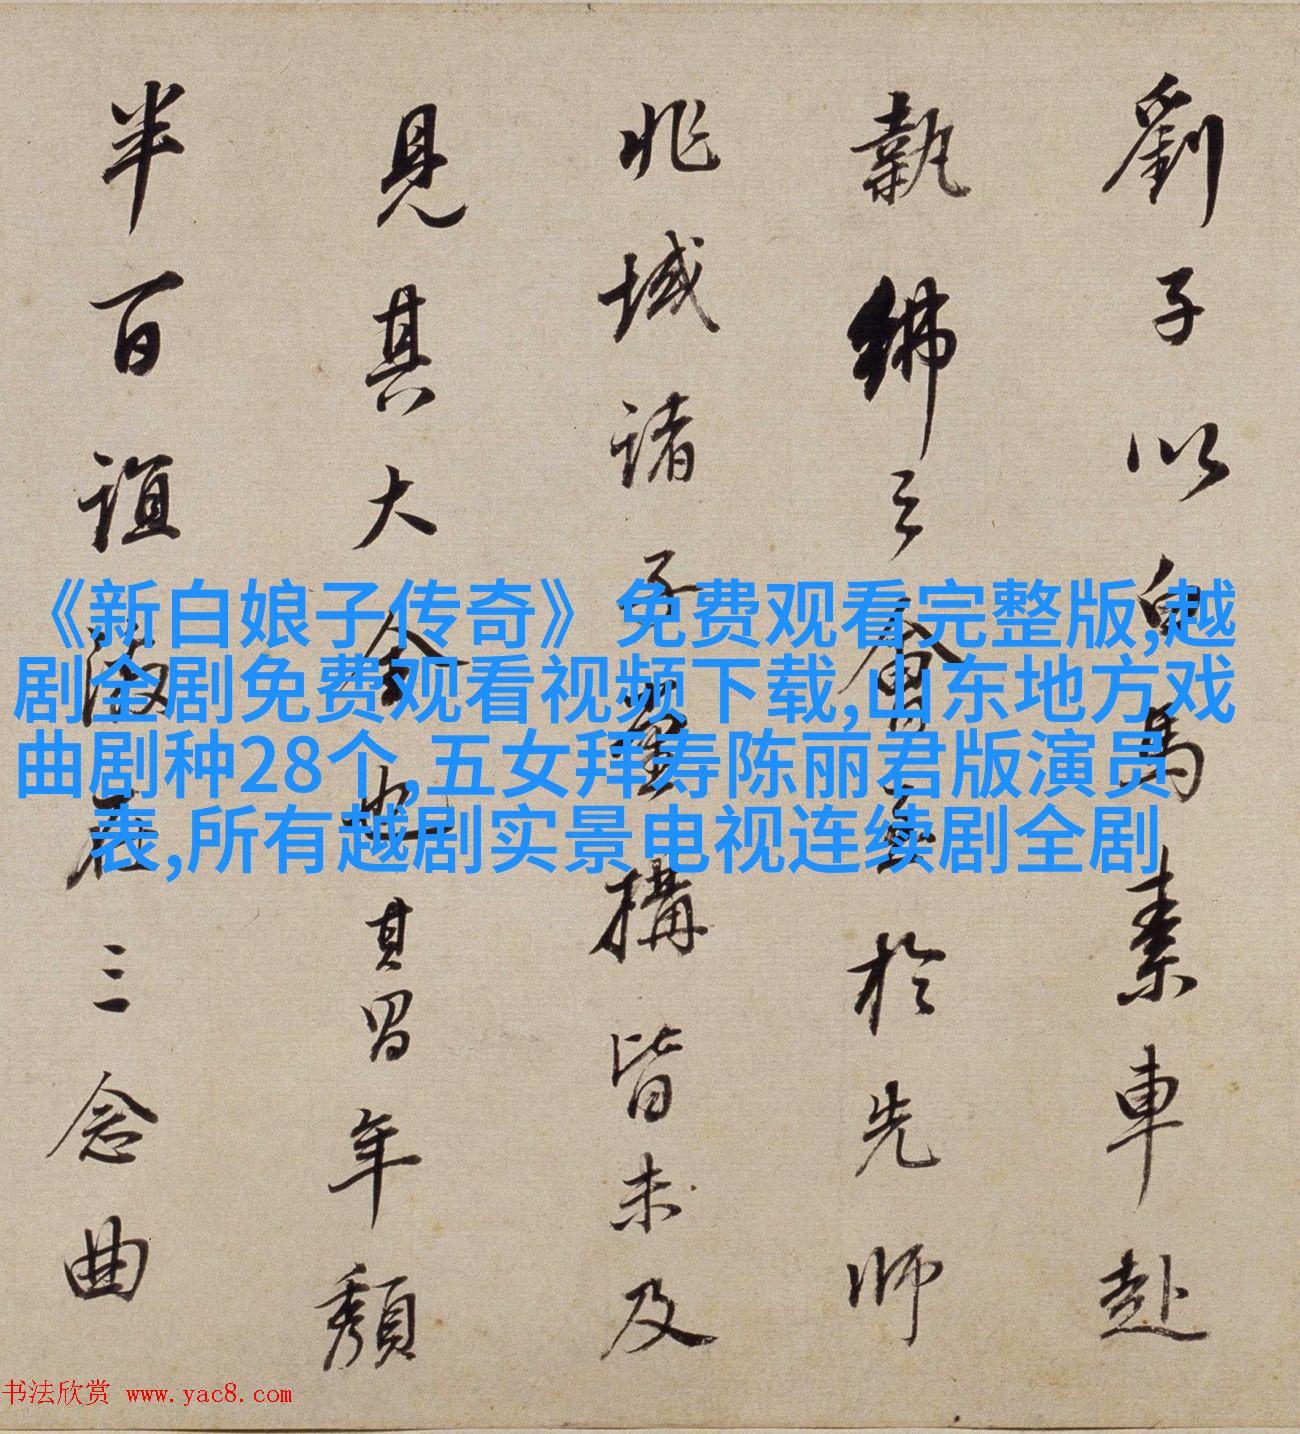 劉子以白馬素車赴
執紼之會於先師
兆域諸子構皆未及
見其大也其年
半百誼三念曲
《新白娘子传奇》免费观看完整版,越
剧全剧免费观看视频下载,山东地方戏
曲剧种28个,五女拜寿陈丽君版演员
表,所有越剧实景电视连续剧全剧
书法欣赏 www.yac8.com